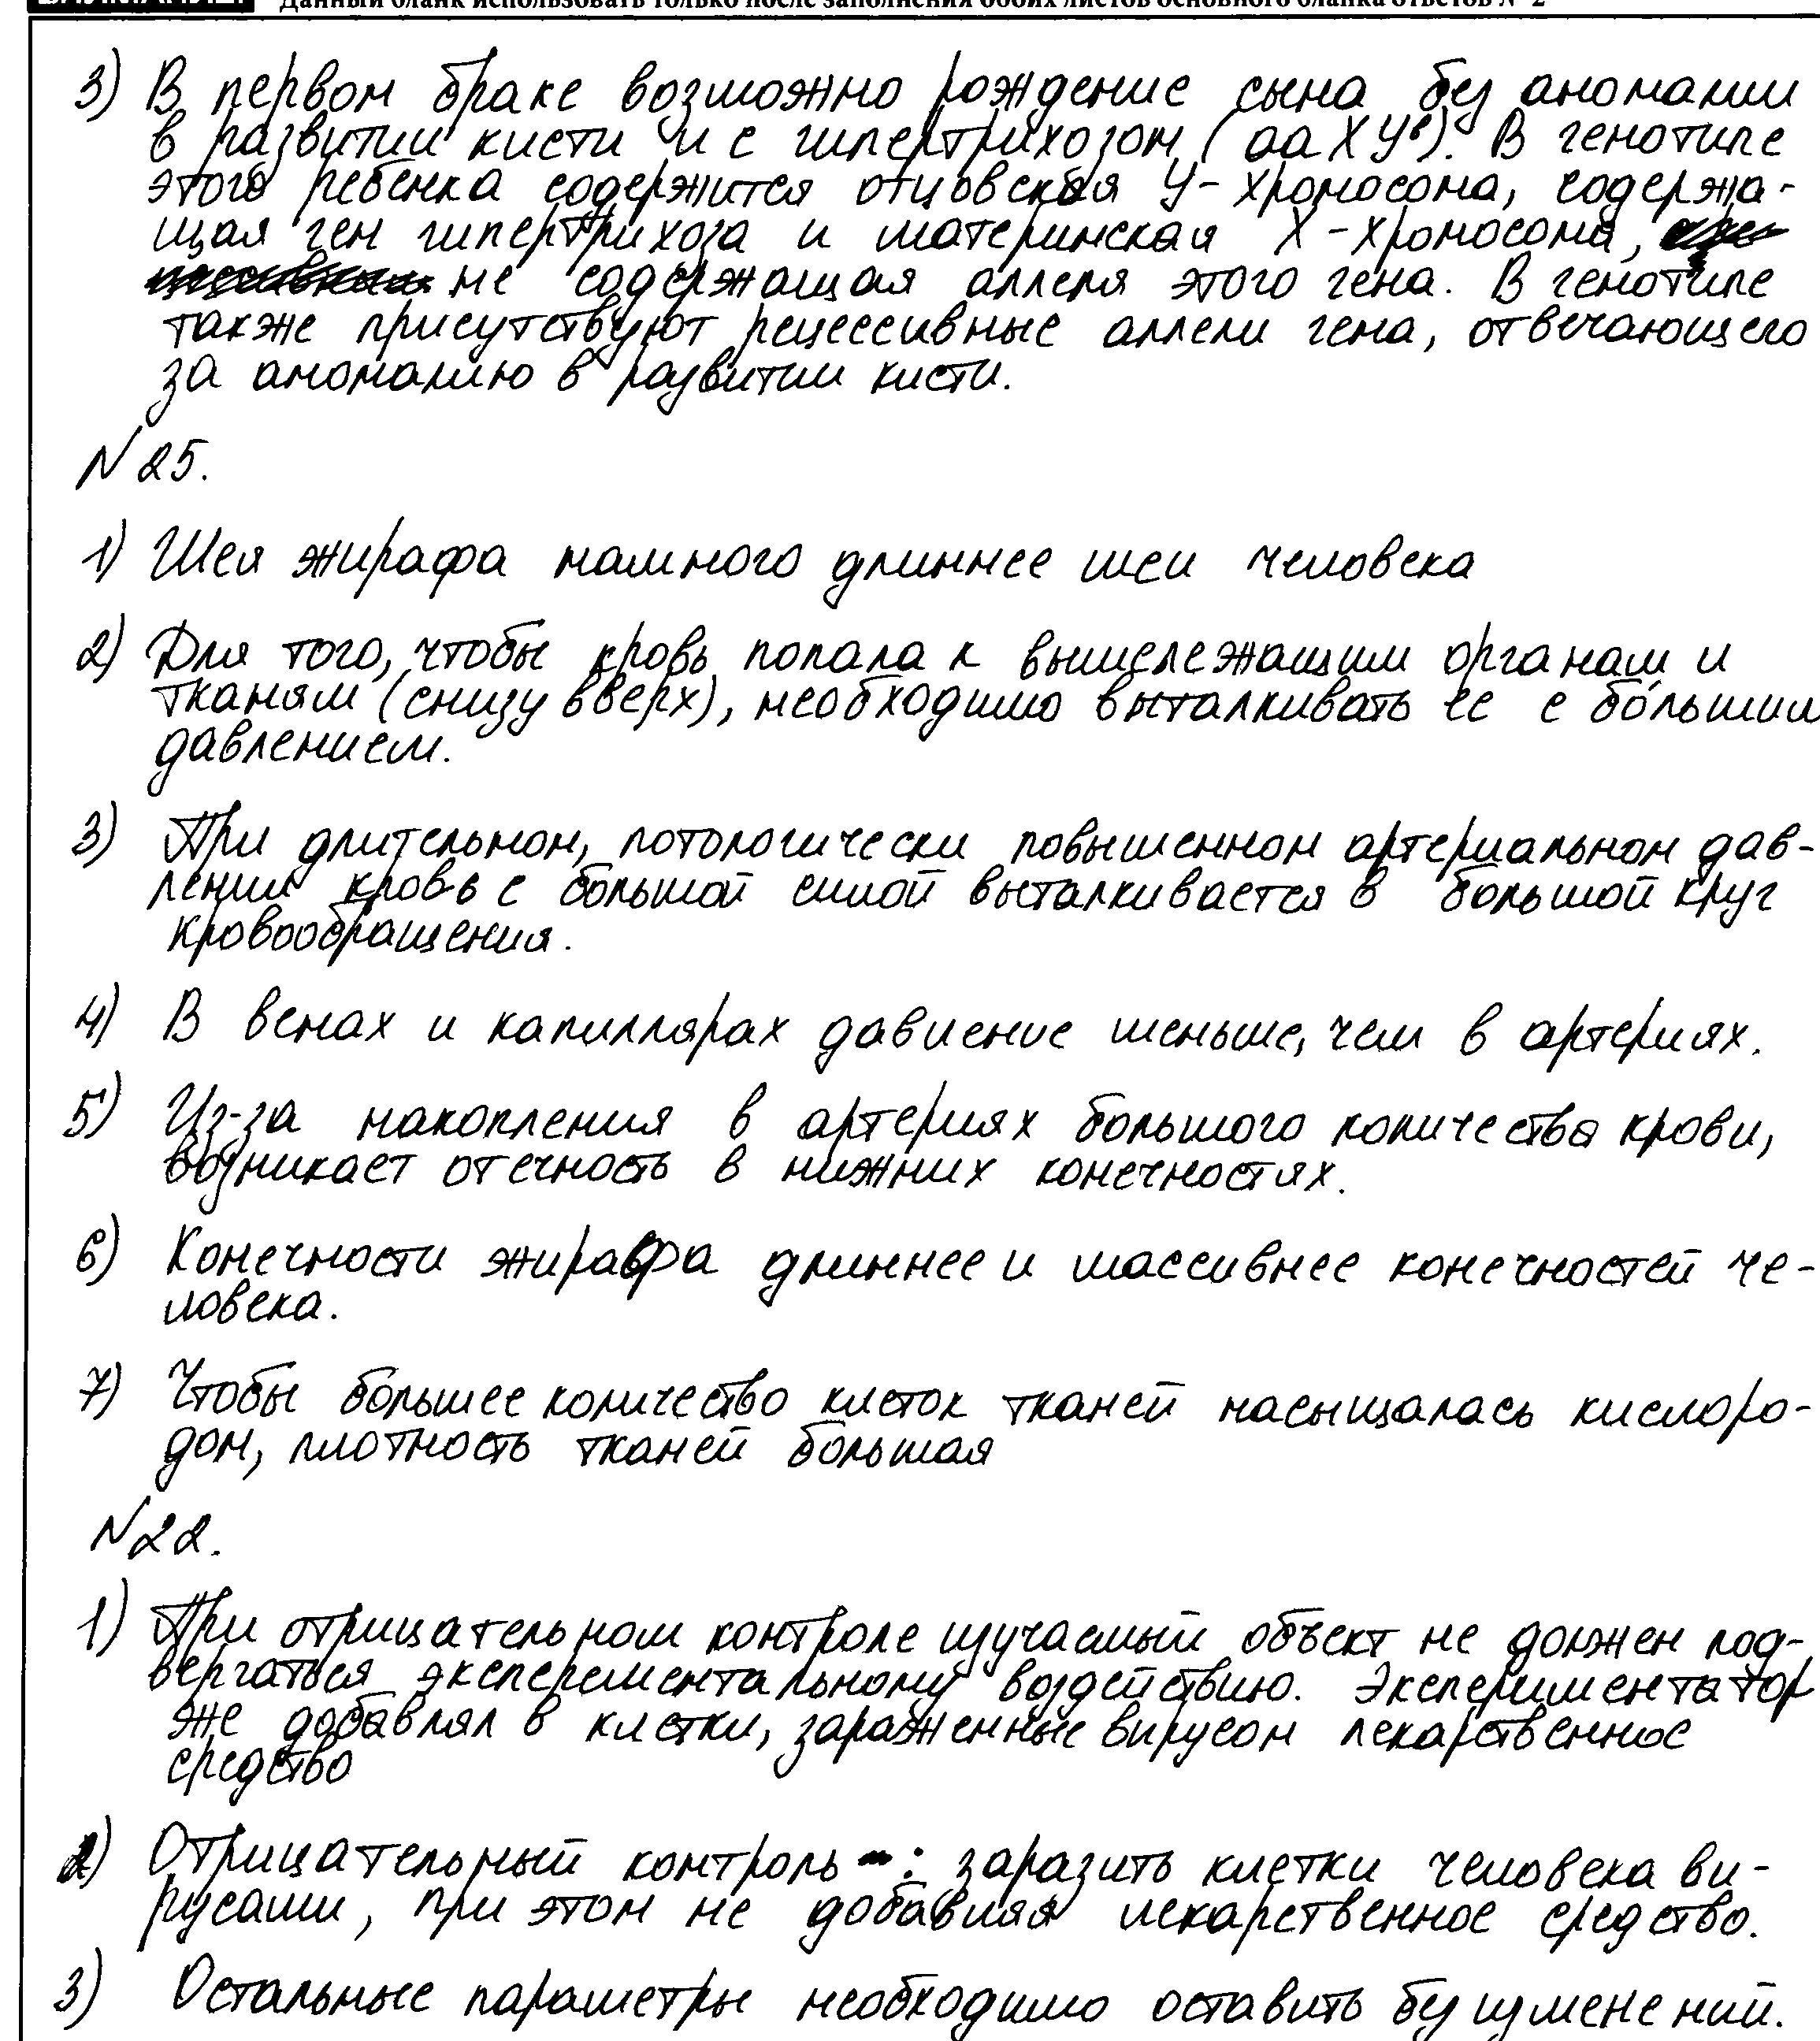 Данный бланк использовать только после заполнения обоих листов основного бланка ответов № 2
3) В первом браке возможно рождение сына без аномалии
в развитии кисти и с гипертрихозом (aaXYᵇ). В генотипе
этого ребенка содержится отцовская Y-хромосома, содержа-
щая ген гипертрихоза и материнская X-хромосома,
не содержащая аллеля этого гена. В генотипе
также присутствуют рецессивные аллели гена, отвечающего
за аномалию в развитии кисти.
N 25.
1) Шея жирафа намного длиннее шеи человека
2) Для того, чтобы кровь попала к вышележащим органам и
тканям (снизу вверх), необходимо выталкивать ее с бо́льшим
давлением.
3) При длительном, потологически повышенном артериальном дав-
лении кровь с большой силой выталкивается в большой круг
кровообращения.
4) В венах и капиллярах давление меньше, чем в артериях.
5) Из-за накопления в артериях большого количества крови,
возникает отечность в нижних конечностях.
6) Конечности жирафа длиннее и массивнее конечностей че-
ловека.
7) Чтобы большее количество клеток тканей насыщалась кислоро-
дом, плотность тканей большая
N22.
1) При отрицательном контроле изучаемый объект не должен под-
вергаться эксперементальному воздействию. Экспериментатор
же добавлял в клетки, зараженные вирусом лекарственное
средство
2) Отрицательный контроль: заразить клетки человека ви-
русами, при этом не добавляя лекарственное средство.
3) Остальные параметры необходимо оставить без изменений.